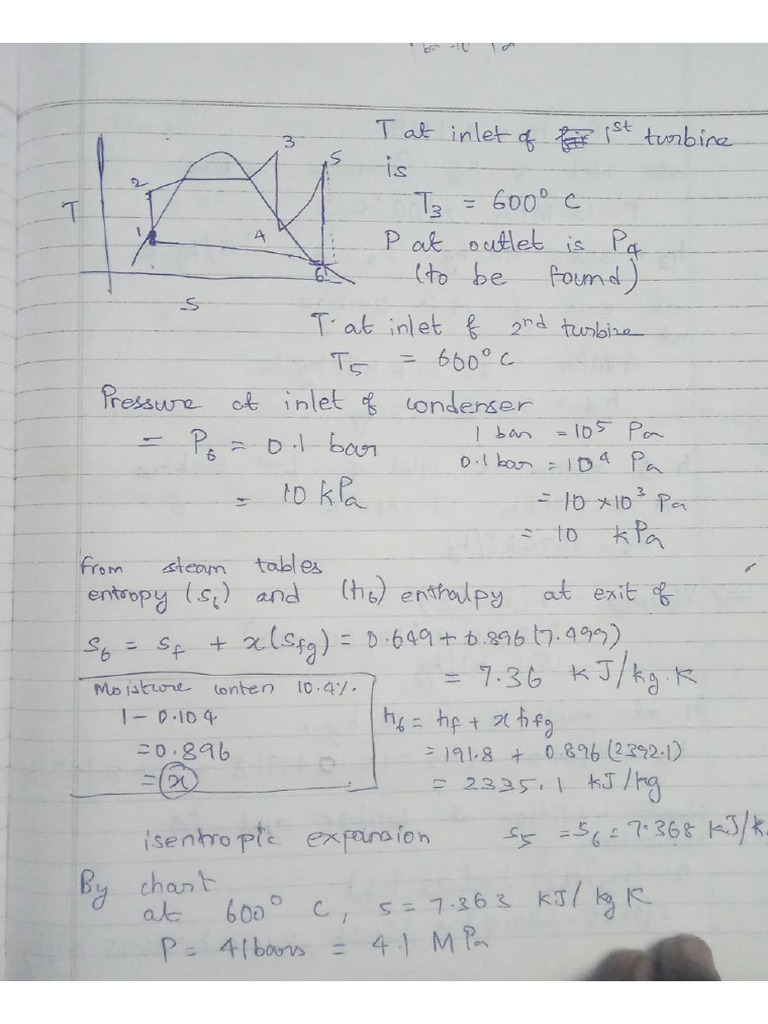 T at inlet of 1st turbine
is
T3 = 600° C
P at outlet is P4
(to be found)
T
1
2
3
4
5
6
S
T at inlet f 2nd turbine
T5 = 600° C
Pressure at inlet of condenser
= P6 = 0.1 bar
= 10 kPa
1 bar = 10^5 Pa
0.1 bar = 10^4 Pa
= 10 × 10^3 Pa
= 10 kPa
from steam tables
entropy (s6) and (h6) enthalpy at exit of
s6 = sf + x(sfg) = 0.649 + 0.896(7.499)
= 7.36 kJ/kg.K
Moisture conten 10.4%.
1 - 0.104
= 0.896
= x
h6 = hf + x hfg
= 191.8 + 0.896(2392.1)
= 2335.1 kJ/kg
isentroptc expansion s5 = s6 = 7.368 kJ/k
By chart
at 600° C, s = 7.363 kJ/kg K
P = 41bars = 4.1 MPa